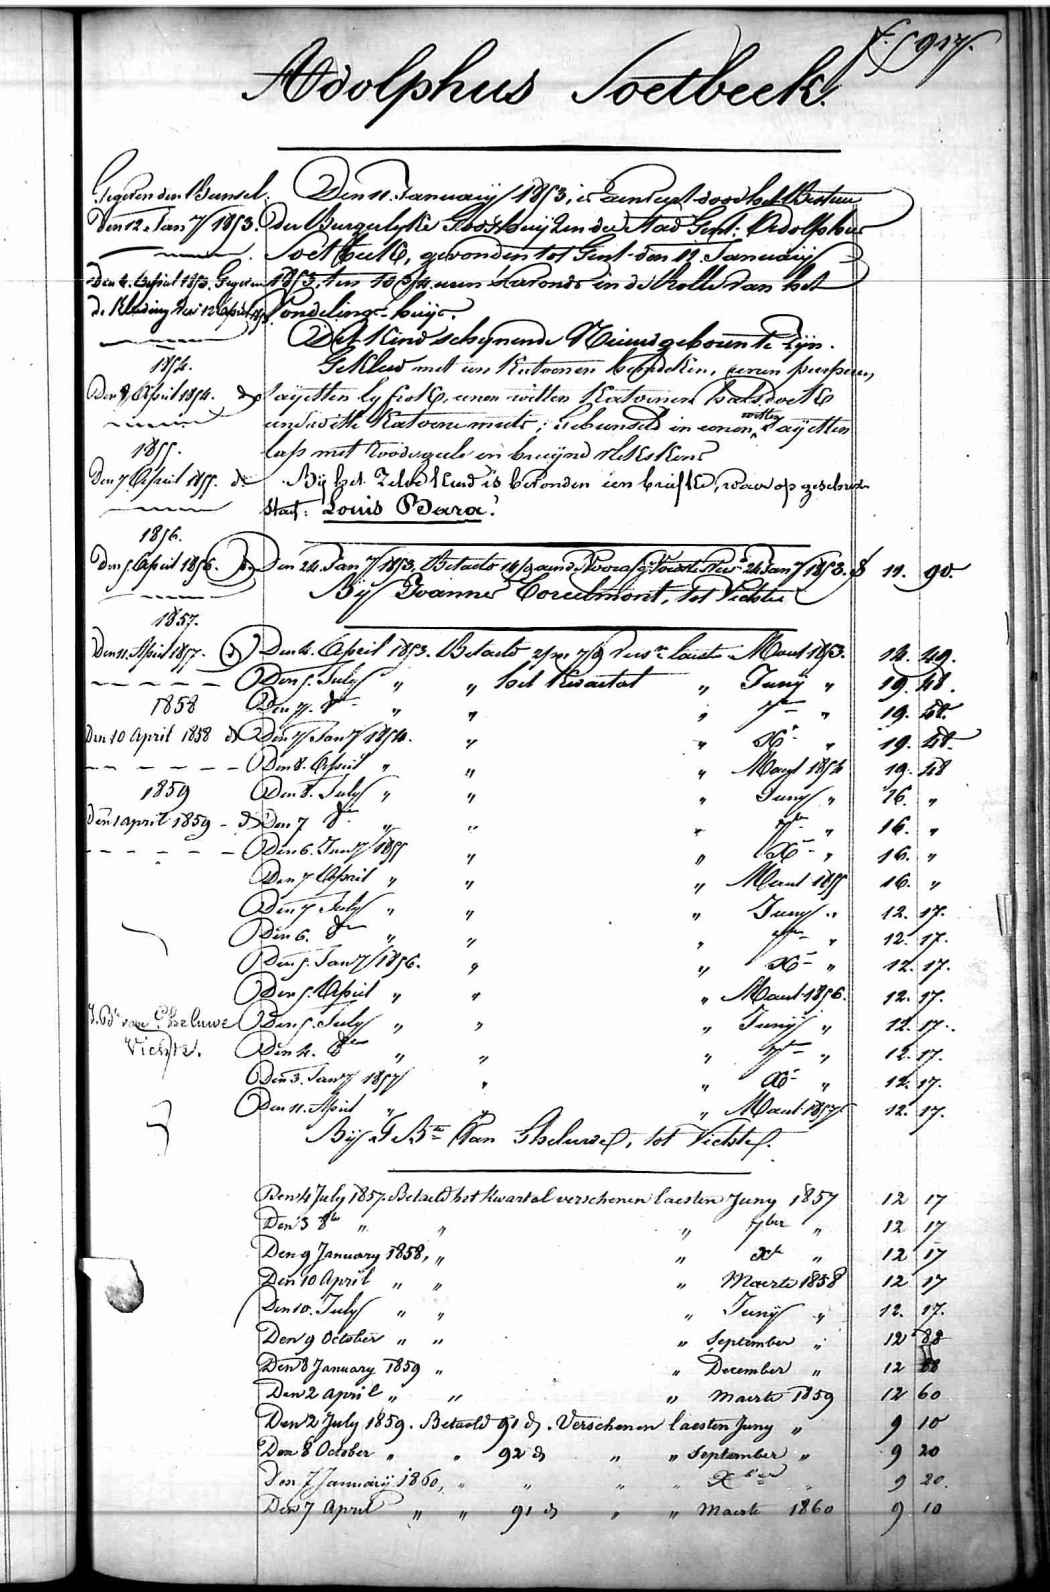 f. 917.
Adolphus Soetbeek.
Gegeven den Bunsel.
Den 12. Jany 1853.
Den 4. April 1853. Gegeven
de Kleeding
1854.
Den 8 April 1854. do
1855.
Den 7 April 1855. do
1856.
Den 5 April 1856. do
1857.
Den 11. April 1857. do
1858
Den 10 April 1858 do
1859
Den 1 april 1859 - do
J. Bte van Gheluwe
Vichte.
Den 11. Januarij 1853, is door het Bestuur
der Burgerlyke Godshuyzen der Stad Gent: Adolphus
Soetbeek, gevonden tot Gent den 11. Januarij
1853, ten 10 3/4 uren s'avonds in de Rolle van het
Vondelinge-huys.
Dit Kind schynende Nieuwgeboren te zyn.
Gekleed met een Katoenen
sayetten lyfrok, eenen witten Katoenen halsdoek
een witte Katoene muts; Gebunseld in eenen witten sayetten
lap met roode geele en bruyne
Bij het Zelve Kind is bevonden een briefke, waer op geschreven
staet: Louis Bara.
Den 24. Jany 1853. Betaeld 24 Jany 1853. 11. 90.
Bij Joannes tot Vichte
Den 4. April 1853. Betaeld laest Maert 1853. 14. 49.
Den 5. July " " het Kwartal " Juny " 19. 48.
Den 7. 8br " " " 7br " 19. 48.
Den 7 Jany 1854. " " Xr " 19. 48.
Den 8. April " " " Maert 1854 19. 48
Den 8. July " " " Juny " 16. "
Den 7 8br " " " 7br " 16. "
Den 6. Jany 1855 " " Xr " 16. "
Den 7 April " " " Maert 1855 16. "
Den 7 July " " " Juny " 12. 17.
Den 6. 8br " " " 7br " 12. 17.
Den 5. Jany 1856. " " Xr " 12. 17.
Den 5. April " " " Maert 1856. 12. 17.
Den 5. July " " " Juny " 12. 17.
Den 4. 8br " " " 7br " 12. 17.
Den 3. Jany 1857 " " Xr " 12. 17.
Den 11. April " " " Maert 1857 12. 17.
Bij J. Bte Van Gheluwe, tot Vichte.
Den 4 July 1857. Betaeld het kwartal verschenen laesten Juny 1857 12 17
Den 3 8br " " " 7ber " 12 17
Den 9 January 1858, " " Xr " 12 17
Den 10 April " " " Maerte 1858 12 17
Den 10. July " " " Juny " 12. 17.
Den 9 October " " " September " 12 88
Den 8 January 1859 " " December " 12 88
Den 2 april " " " Maerte 1859 12 60
Den 2 July 1859. Betaeld 91 d. Verschenen laesten Juny " 9 10
Den 8 October " " 92 d " " September " 9 20
Den 7 Januarij 1860, " " " " Xber " 9 20.
Den 7 April " " 91 d " " Maerte 1860 9 10